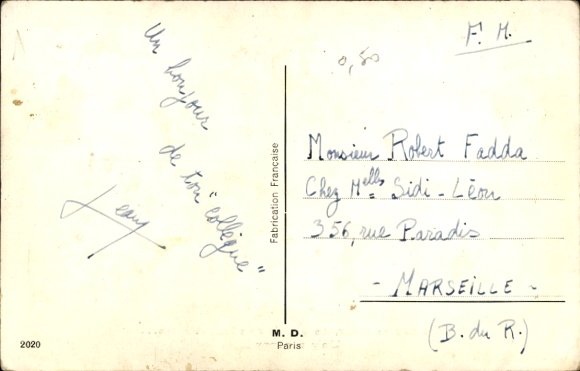 F. M.
0,50
Un bonjour
de ton "collègue"
Jean
Monsieur Robert Fadda
Chez Melles Sidi-Léon
356, rue Paradis
- MARSEILLE -
(B. du R.)
Fabrication Française
M. D.
Paris
2020